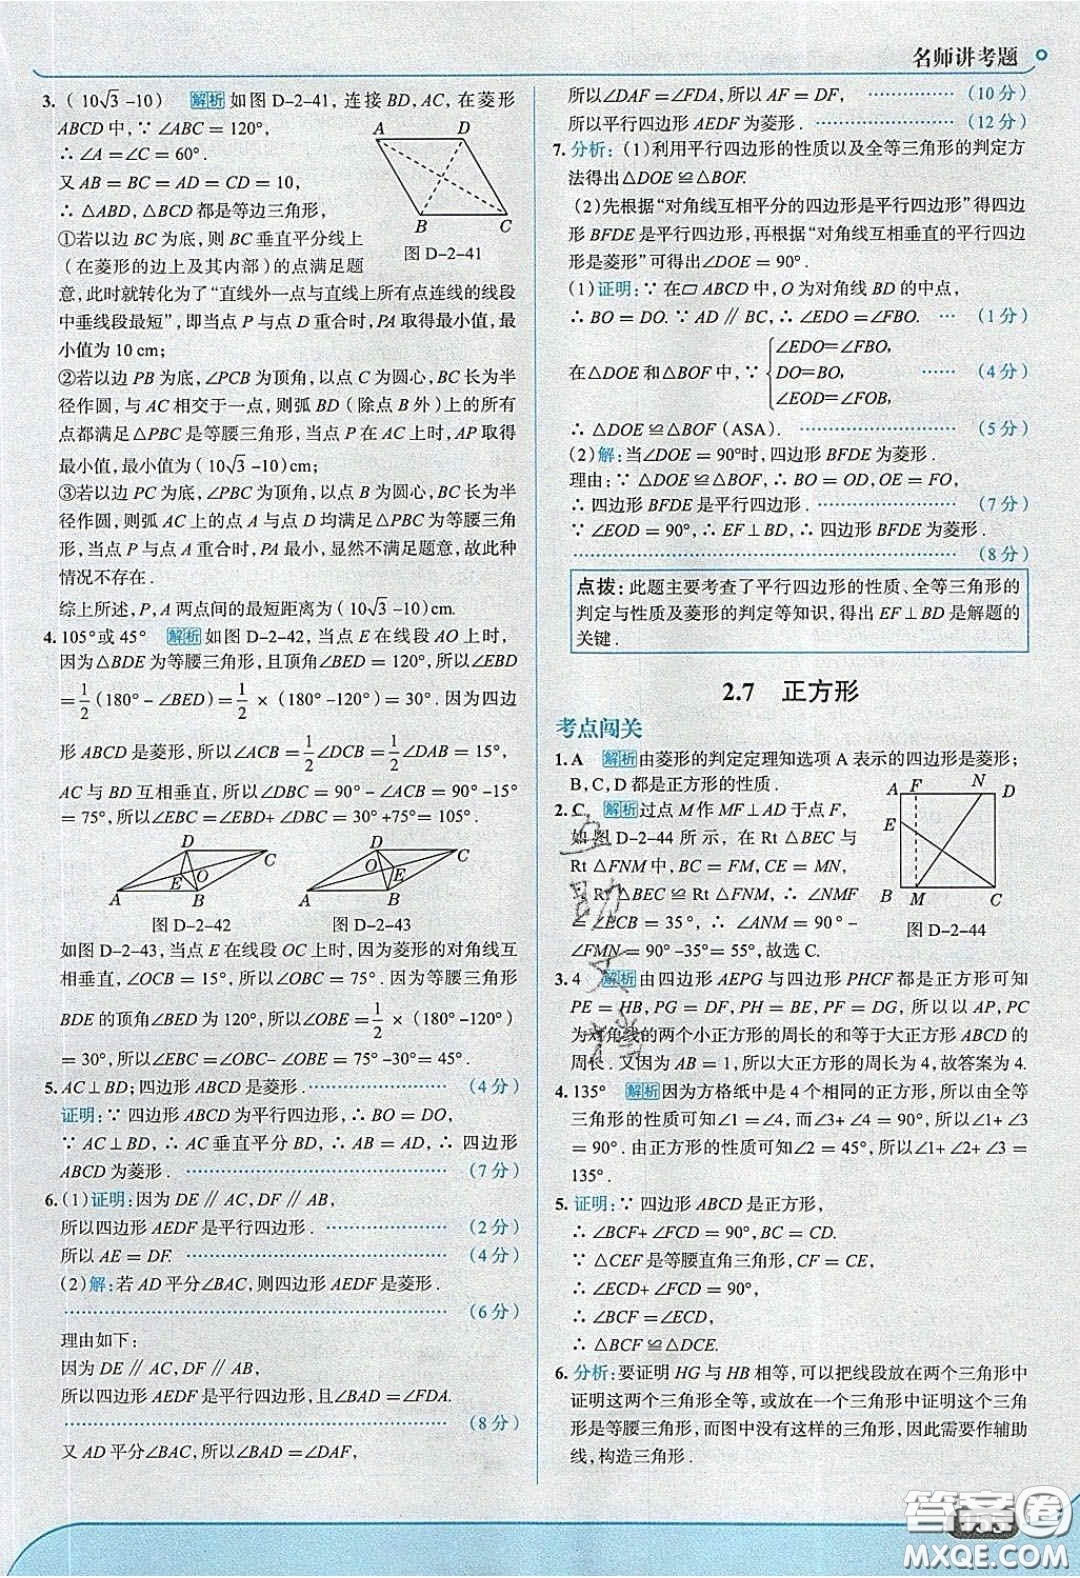 名师讲考题
3. (10√3 -10) 解析 如图 D-2-41, 连接 BD, AC, 在菱形
ABCD 中, ∵ ∠ABC = 120°,
∴ ∠A = ∠C = 60°.
又 AB = BC = AD = CD = 10,
∴ △ABD, △BCD 都是等边三角形,
A D B C
图 D-2-41
①若以边 BC 为底, 则 BC 垂直平分线上
(在菱形的边上及其内部) 的点满足题
意, 此时就转化为了“直线外一点与直线上所有点连线的线段
中垂线段最短”, 即当点 P 与点 D 重合时, PA 取得最小值, 最
小值为 10 cm;
②若以边 PB 为底, ∠PCB 为顶角, 以点 C 为圆心, BC 长为半
径作圆, 与 AC 相交于一点, 则弧 BD (除点 B 外) 上的所有
点都满足△PBC 是等腰三角形, 当点 P 在 AC 上时, AP 取得
最小值, 最小值为 (10√3 -10) cm;
③若以边 PC 为底, ∠PBC 为顶角, 以点 B 为圆心, BC 长为半
径作圆, 则弧 AC 上的点 A 与点 D 均满足△PBC 为等腰三角
形, 当点 P 与点 A 重合时, PA 最小, 显然不满足题意, 故此种
情况不存在.
综上所述, P, A 两点间的最短距离为 (10√3 -10) cm.
4. 105°或 45° 解析 如图 D-2-42, 当点 E 在线段 AO 上时,
因为△BDE 为等腰三角形, 且顶角∠BED = 120°, 所以∠EBD
= 1/2 (180° - ∠BED) = 1/2 × (180° -120°) = 30°. 因为四边
形 ABCD 是菱形, 所以∠ACB = 1/2 ∠DCB = 1/2 ∠DAB = 15°,
AC 与 BD 互相垂直, 所以∠DBC = 90° - ∠ACB = 90° -15°
= 75°, 所以∠EBC = ∠EBD+ ∠DBC = 30° +75° = 105°.
A B C D E O
图 D-2-42
A B C D E O
图 D-2-43
如图 D-2-43, 当点 E 在线段 OC 上时, 因为菱形的对角线互
相垂直, ∠OCB = 15°, 所以∠OBC = 75°. 因为等腰三角形
BDE 的顶角∠BED 为 120°, 所以∠OBE = 1/2 × (180° -120°)
= 30°, 所以∠EBC = ∠OBC- ∠OBE = 75° -30° = 45°.
5. AC ⊥ BD; 四边形 ABCD 是菱形. (4 分)
证明: ∵ 四边形 ABCD 为平行四边形, ∴ BO = DO,
∵ AC ⊥ BD, ∴ AC 垂直平分 BD, ∴ AB = AD, ∴ 四边形
ABCD 为菱形. (7 分)
6. (1) 证明: 因为 DE ∥ AC, DF ∥ AB,
所以四边形 AEDF 是平行四边形. (2 分)
所以 AE = DF. (4 分)
(2) 解: 若 AD 平分∠BAC, 则四边形 AEDF 是菱形.
(6 分)
理由如下:
因为 DE ∥ AC, DF ∥ AB,
所以四边形 AEDF 是平行四边形, 且∠BAD = ∠FDA.
(8 分)
又 AD 平分∠BAC, 所以∠BAD = ∠DAF,
所以∠DAF = ∠FDA, 所以 AF = DF, (10 分)
所以平行四边形 AEDF 为菱形. (12 分)
7. 分析: (1) 利用平行四边形的性质以及全等三角形的判定方
法得出△DOE ≌ △BOF.
(2) 先根据“对角线互相平分的四边形是平行四边形”得四边
形 BFDE 是平行四边形, 再根据“对角线互相垂直的平行四边
形是菱形”可得出∠DOE = 90°.
(1) 证明: ∵ 在▱ ABCD 中, O 为对角线 BD 的中点,
∴ BO = DO. ∵ AD ∥ BC, ∴ ∠EDO = ∠FBO. (1 分)
在△DOE 和△BOF 中, ∵ { ∠EDO = ∠FBO,
DO = BO, (4 分)
∠EOD = ∠FOB,
∴ △DOE ≌ △BOF (ASA). (5 分)
(2) 解: 当∠DOE = 90°时, 四边形 BFDE 为菱形.
理由: ∵ △DOE ≌ △BOF, ∴ BO = OD, OE = FO,
∴ 四边形 BFDE 是平行四边形. (7 分)
∵ ∠EOD = 90°, ∴ EF ⊥ BD, ∴ 四边形 BFDE 为菱形.
(8 分)
点拨: 此题主要考查了平行四边形的性质、全等三角形的
判定与性质及菱形的判定等知识, 得出 EF ⊥ BD 是解题的
关键.
2.7 正方形
考点闯关
1. A 解析 由菱形的判定定理知选项 A 表示的四边形是菱形;
B, C, D 都是正方形的性质.
2. C 解析 过点 M 作 MF ⊥ AD 于点 F,
如图 D-2-44 所示, 在 Rt △BEC 与
Rt △FNM 中, BC = FM, CE = MN,
Rt △BEC ≌ Rt △FNM, ∴ ∠NMF
= ∠ECB = 35°, ∴ ∠ANM = 90° -
∠FMN = 90° -35° = 55°, 故选 C.
A F N D E B M C
图 D-2-44
3. 4 解析 由四边形 AEPG 与四边形 PHCF 都是正方形可知
PE = HB, PG = DF, PH = BE, PF = DG, 所以以 AP, PC
为对角线的两个小正方形的周长的和等于大正方形 ABCD 的
周长. 又因为 AB = 1, 所以大正方形的周长为 4, 故答案为 4.
4. 135° 解析 因为方格纸中是 4 个相同的正方形, 所以由全等
三角形的性质可知∠1 = ∠4, 而∠3+ ∠4 = 90°, 所以∠1+ ∠3
= 90°. 由正方形的性质可知∠2 = 45°, 所以∠1+ ∠2+ ∠3 =
135°.
5. 证明: ∵ 四边形 ABCD 是正方形,
∴ ∠BCF+ ∠FCD = 90°, BC = CD.
∵ △CEF 是等腰直角三角形, CF = CE,
∴ ∠ECD+ ∠FCD = 90°,
∴ ∠BCF = ∠ECD,
∴ △BCF ≌ △DCE.
6. 分析: 要证明 HG 与 HB 相等, 可以把线段放在两个三角形中
证明这两个三角形全等, 或放在一个三角形中证明这个三角
形是等腰三角形, 而图中没有这样的三角形, 因此需要作辅助
线, 构造三角形.
答案圈
MXQE.COM